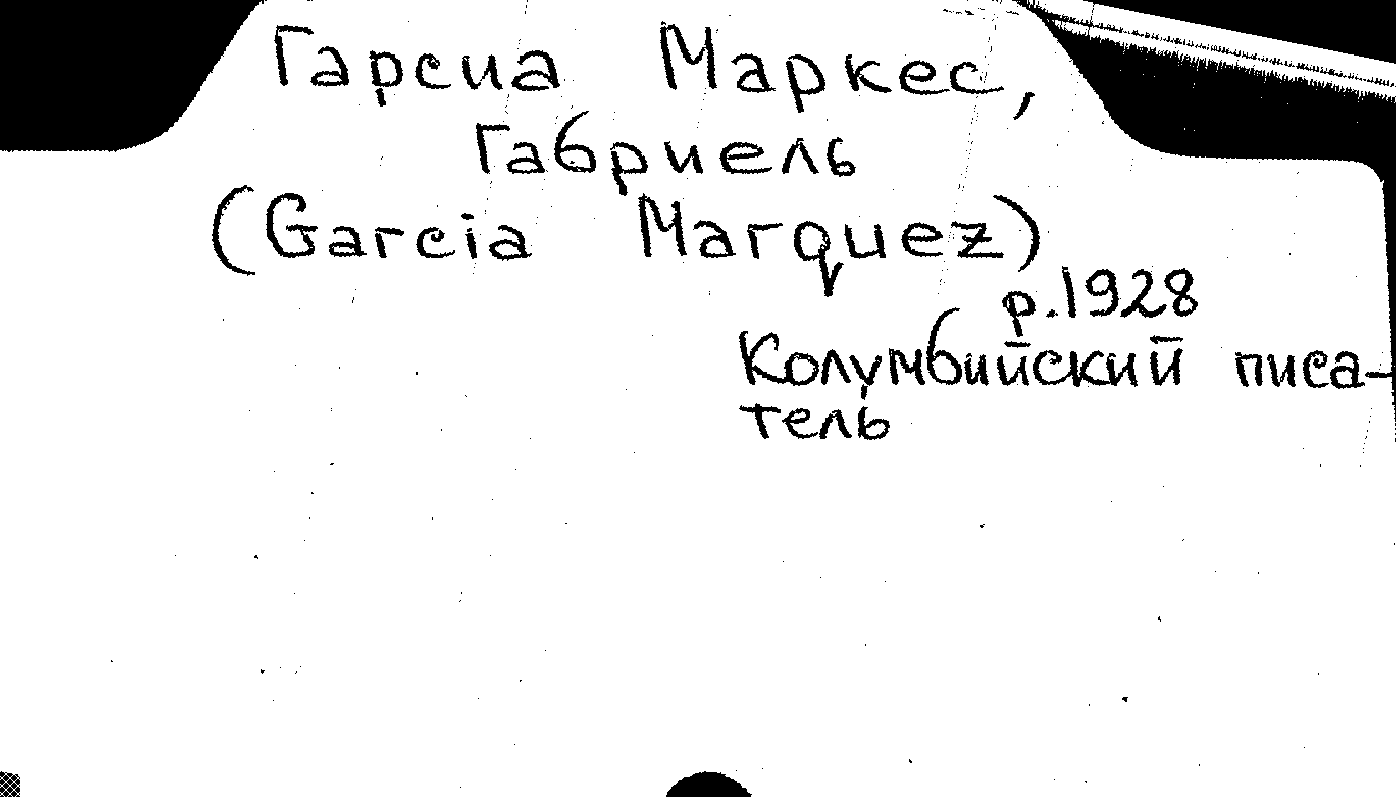 Гарсиа Маркес,
Габриель
(Garcia Marquez)
р.1928
Колумбийский писа-
тель